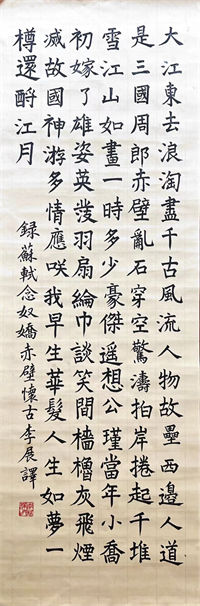 大江東去浪淘盡千古風流人物故壘西邊人道
是三國周郎赤壁亂石穿空驚濤拍岸捲起千堆
雪江山如畫一時多少豪傑遥想公瑾當年小喬
初嫁了雄姿英發羽扇綸巾談笑間檣櫓灰飛煙
滅故國神游多情應咲我早生華髮人生如夢一
樽還酹江月
録蘇軾念奴嬌赤壁懷古李展譯